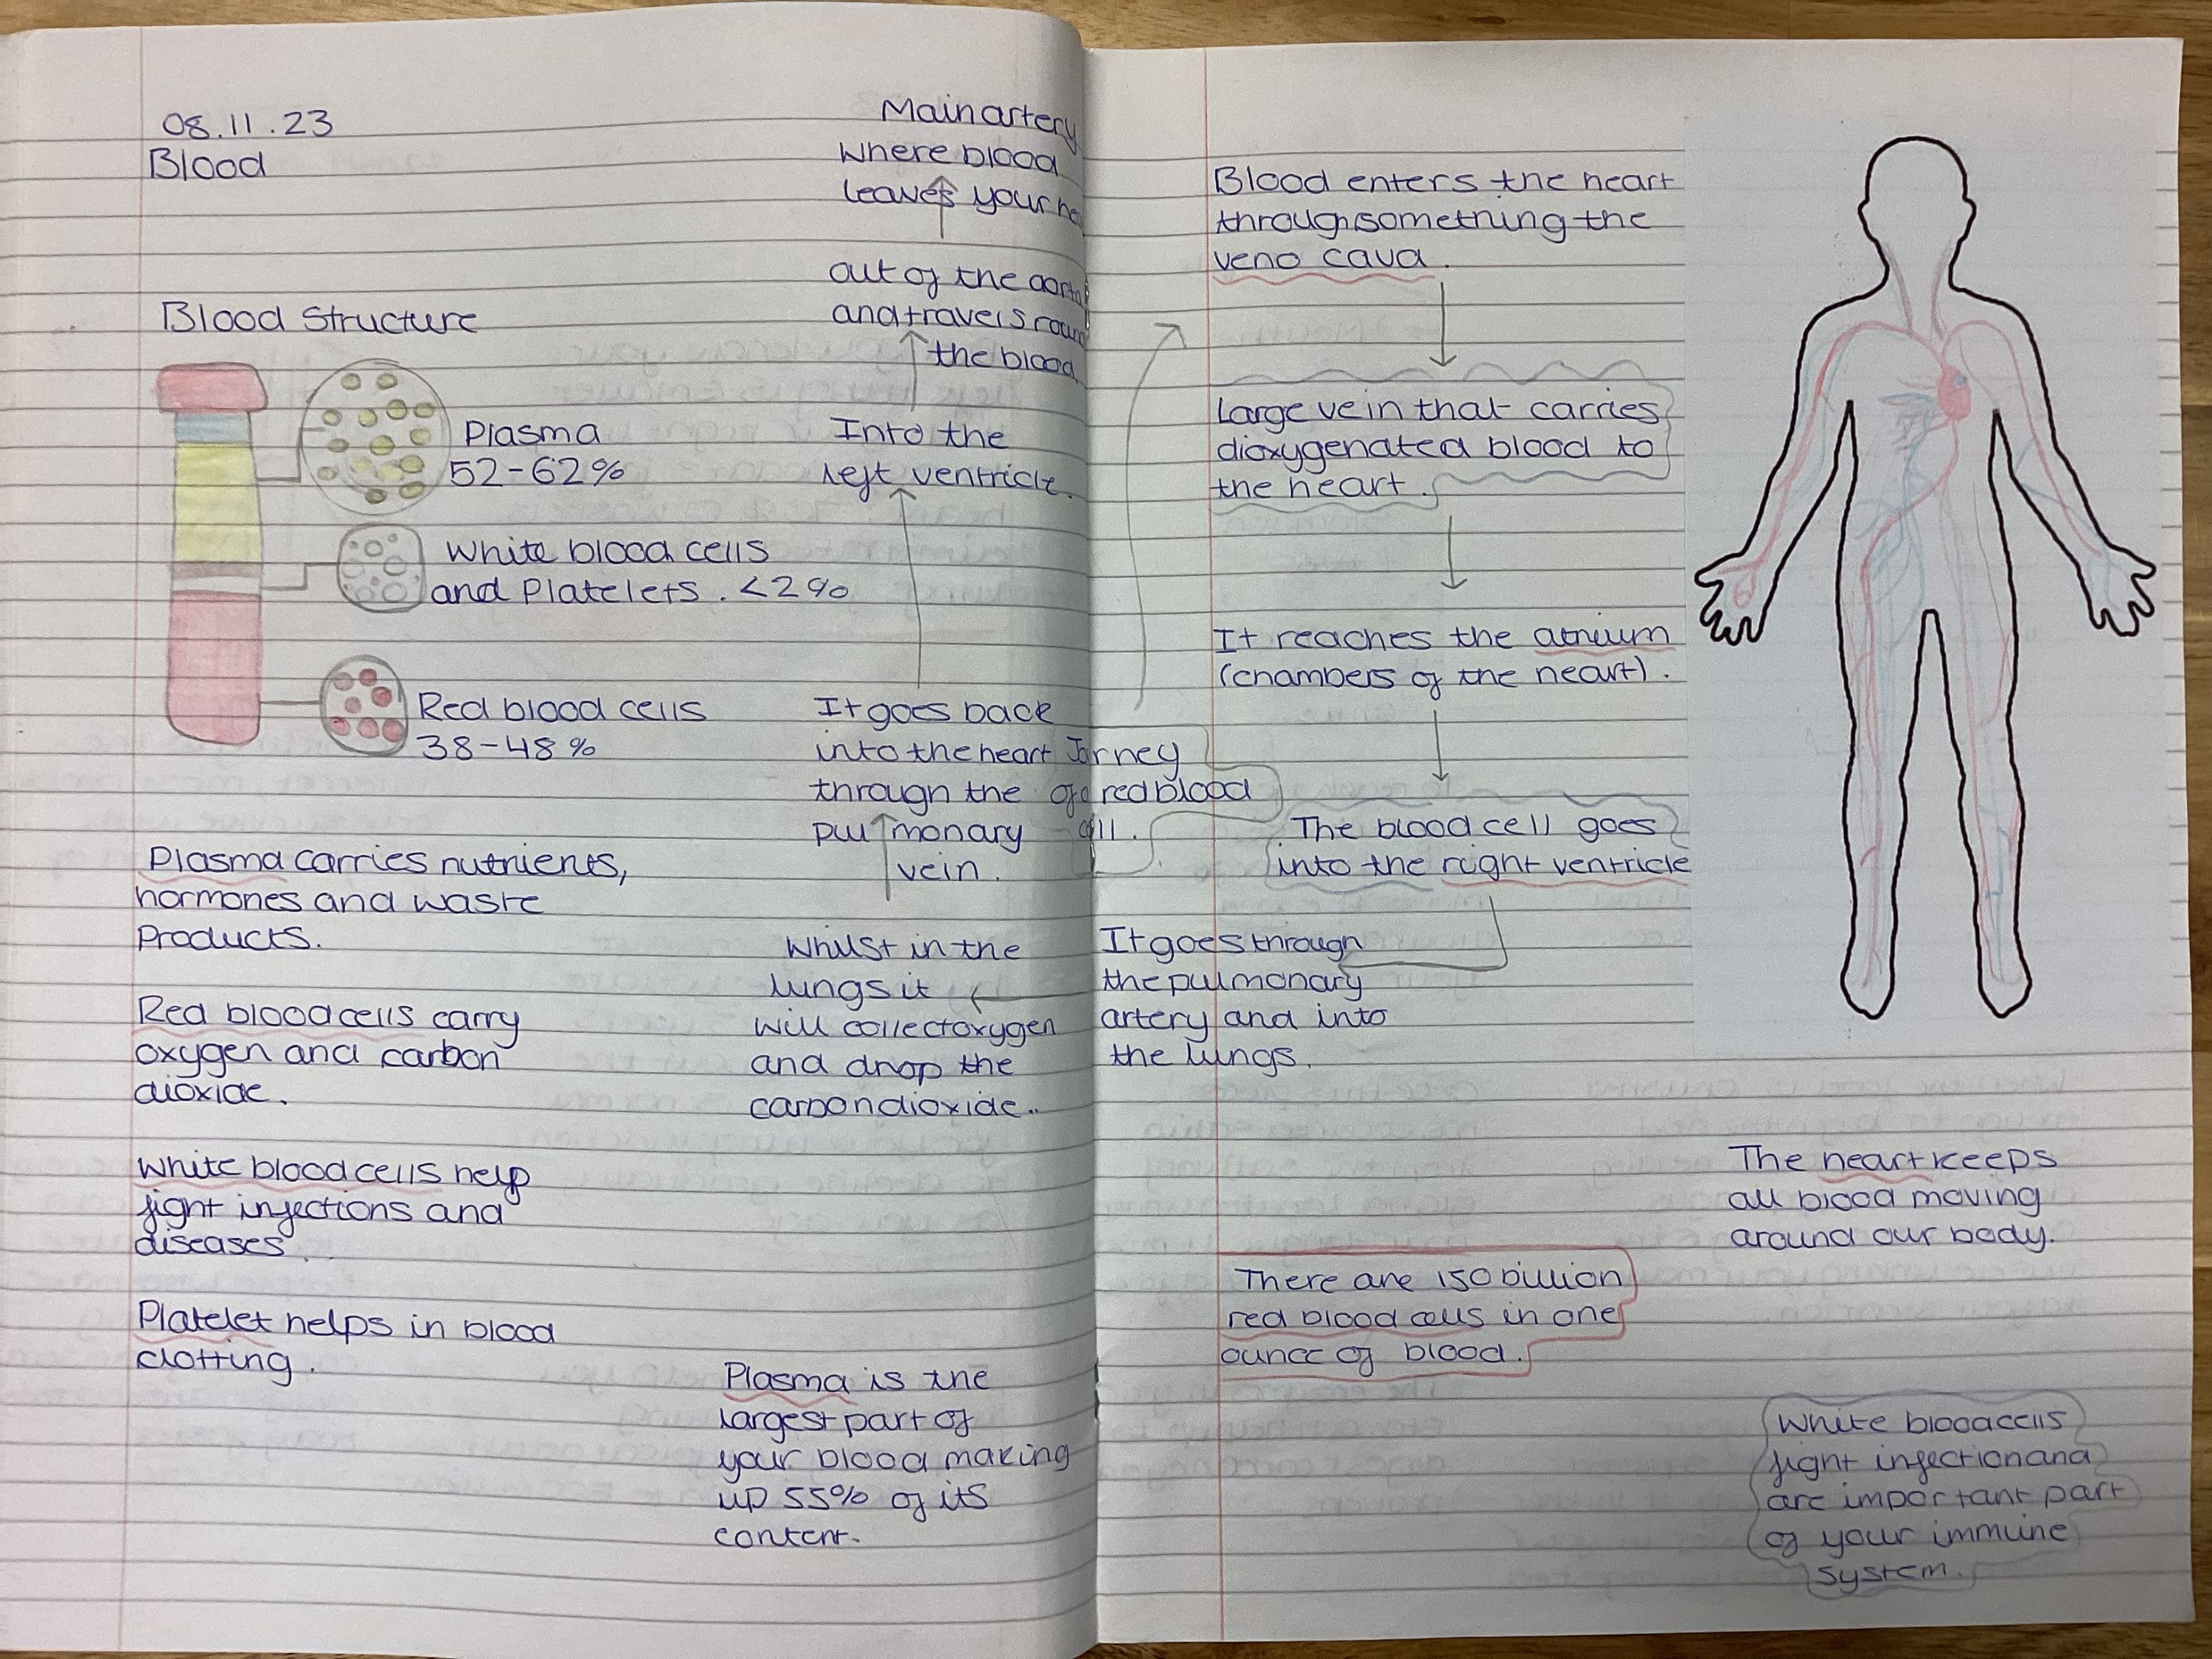 08.11.23
Blood
Blood Structure
Plasma
52-62%
White blood cells
and Platelets. <2%
Red blood cells
38-48%
Plasma carries nutrients,
hormones and waste
Products.
Red blood cells carry
oxygen and carbon
dioxide.
White blood cells help
fight infections and
diseases
Platelet helps in blood
clotting.
Main artery
where blood
leaves your
out of the aorta
and travels round
the blood
Into the
left ventricle.
It goes back
into the heart
through the
pulmonary
vein.
Whilst in the
lungs it
will collect oxygen
and drop the
carbon dioxide..
Plasma is the
largest part of
your blood making
up 55% of its
content.
Jorney
of a red blood
cell.
Blood enters the heart
through something the
veno cava.
Large vein that carries
dioxygenated blood to
the heart.
It reaches the atrium
(chambers of the heart).
The blood cell goes
into the right ventricle
It goes through
the pulmonary
artery and into
the lungs.
There are 150 billion
red blood cells in one
ounce of blood.
The heart keeps
all blood moving
around our body.
White blood cells
fight infection and
are important part
of your immune
system.